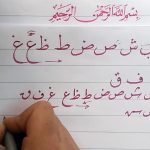 بسم الله الرحمن الرحیم
ش ص ض ط ظ ع غ
ف ق
ش ص ض ط ظ ع غ ف ق